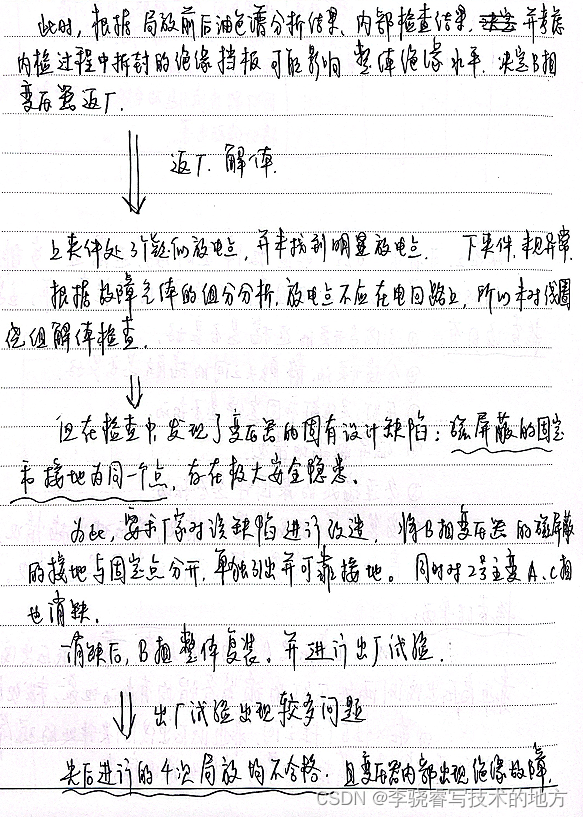 此时,根据局放前后油色谱分析结果、内部检查结果,并考虑
内检过程中拆封的绝缘挡板可能影响整体绝缘水平.决定B相
变压器返厂.
返厂.解体.
上夹件处3个疑似放电点,并未找到明显放电点. 下夹件.未见异常.
根据故障气体的组分分析.放电点不应在电回路上,所以未对线圈
绕组解体检查.
但在检查中,发现了变压器的固有设计缺陷:磁屏蔽的固定
和接地为同一个点,存在极大安全隐患。
为此,要求厂家对该缺陷进行改造,将B相变压器的磁屏蔽
的接地与固定点分开,单独引出并可靠接地。同时对2号主变A、C相
也消缺.
消缺后,B相整体复装。并进行出厂试验.
出厂试验出现较多问题
先后进行的4次局放均不合格.且变压器内部出现绝缘故障.
CSDN @李骁睿写技术的地方